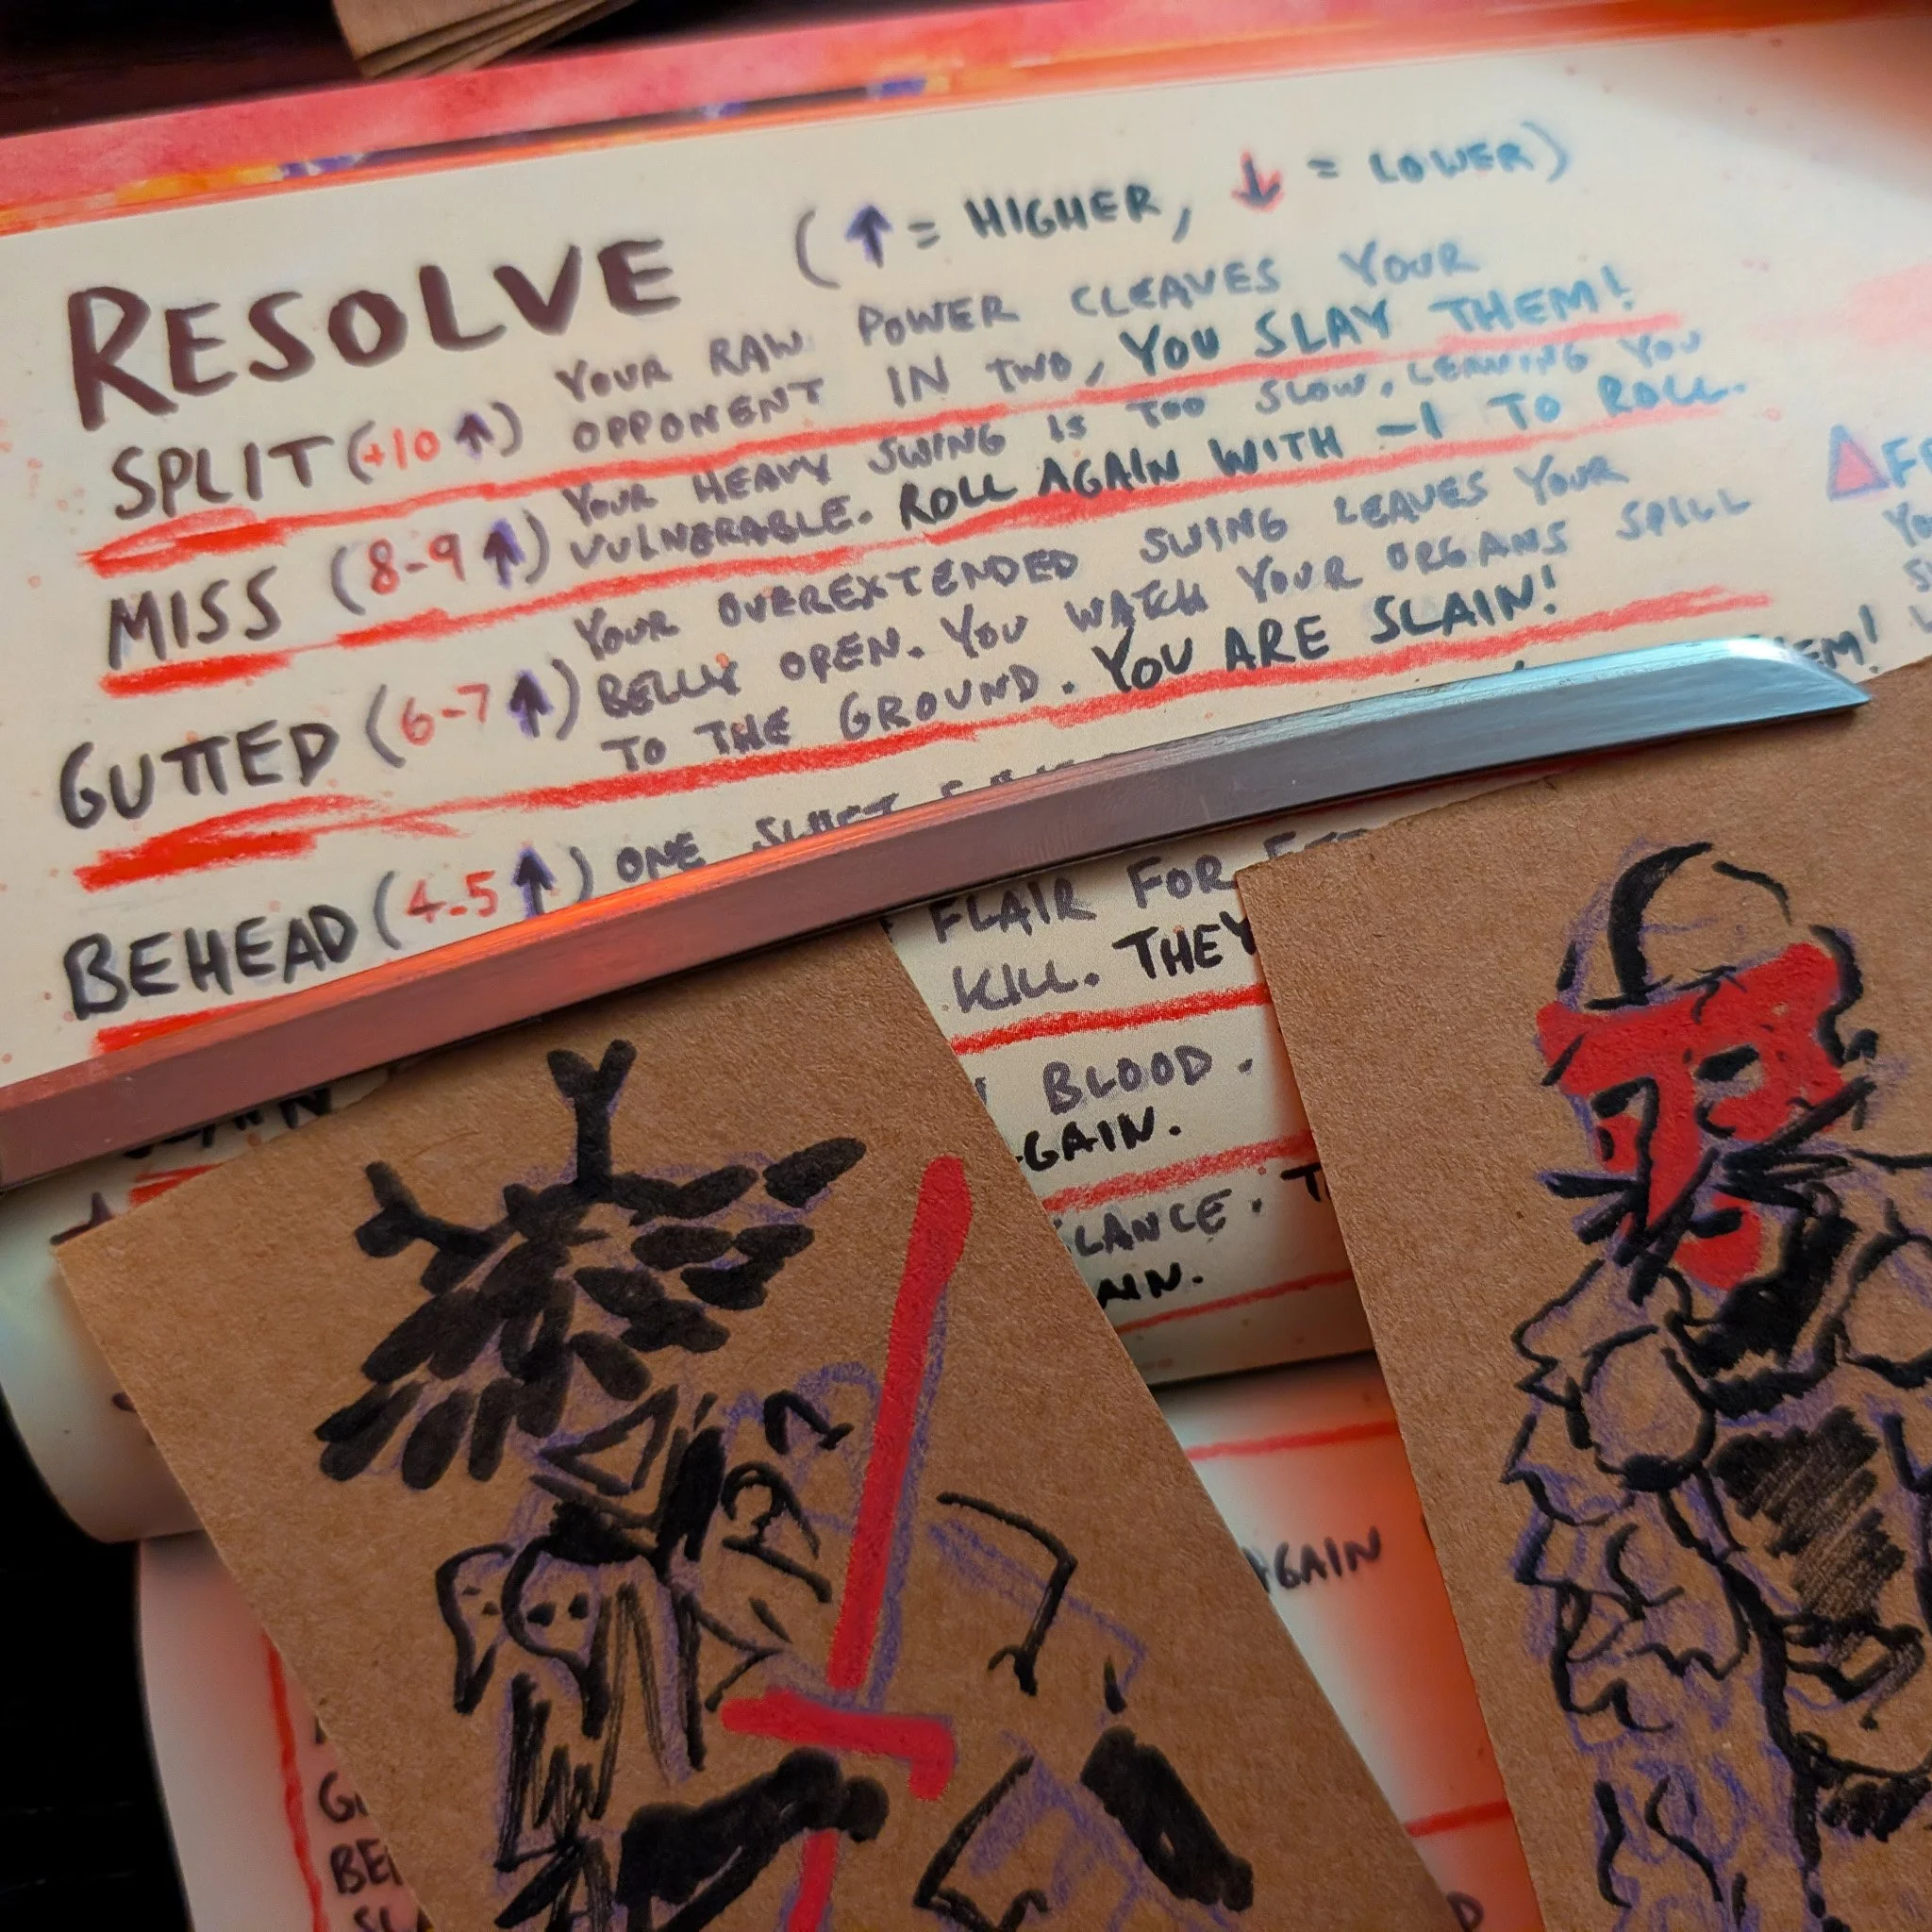 RESOLVE (↑ = HIGHER, ↓ = LOWER)
SPLIT (+10 ↑) YOUR RAW POWER CLEAVES YOUR
OPPONENT IN TWO, YOU SLAY THEM!
MISS (8-9 ↑) YOUR HEAVY SWING IS TOO SLOW, LEAVING YOU
VULNERABLE. ROLL AGAIN WITH -1 TO ROLL.
GUTTED (6-7 ↑) YOUR OVEREXTENDED SWING LEAVES YOUR
BELLY OPEN. YOU WATCH YOUR ORGANS SPILL
TO THE GROUND. YOU ARE SLAIN!
BEHEAD (4-5 ↑) ONE
EM!
FLAIR FOR
KILL. THEY
BLOOD.
GAIN.
LANCE.
AIN.
AGAIN